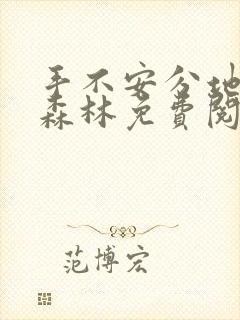 手不安分地
森林免费阅
范博宏